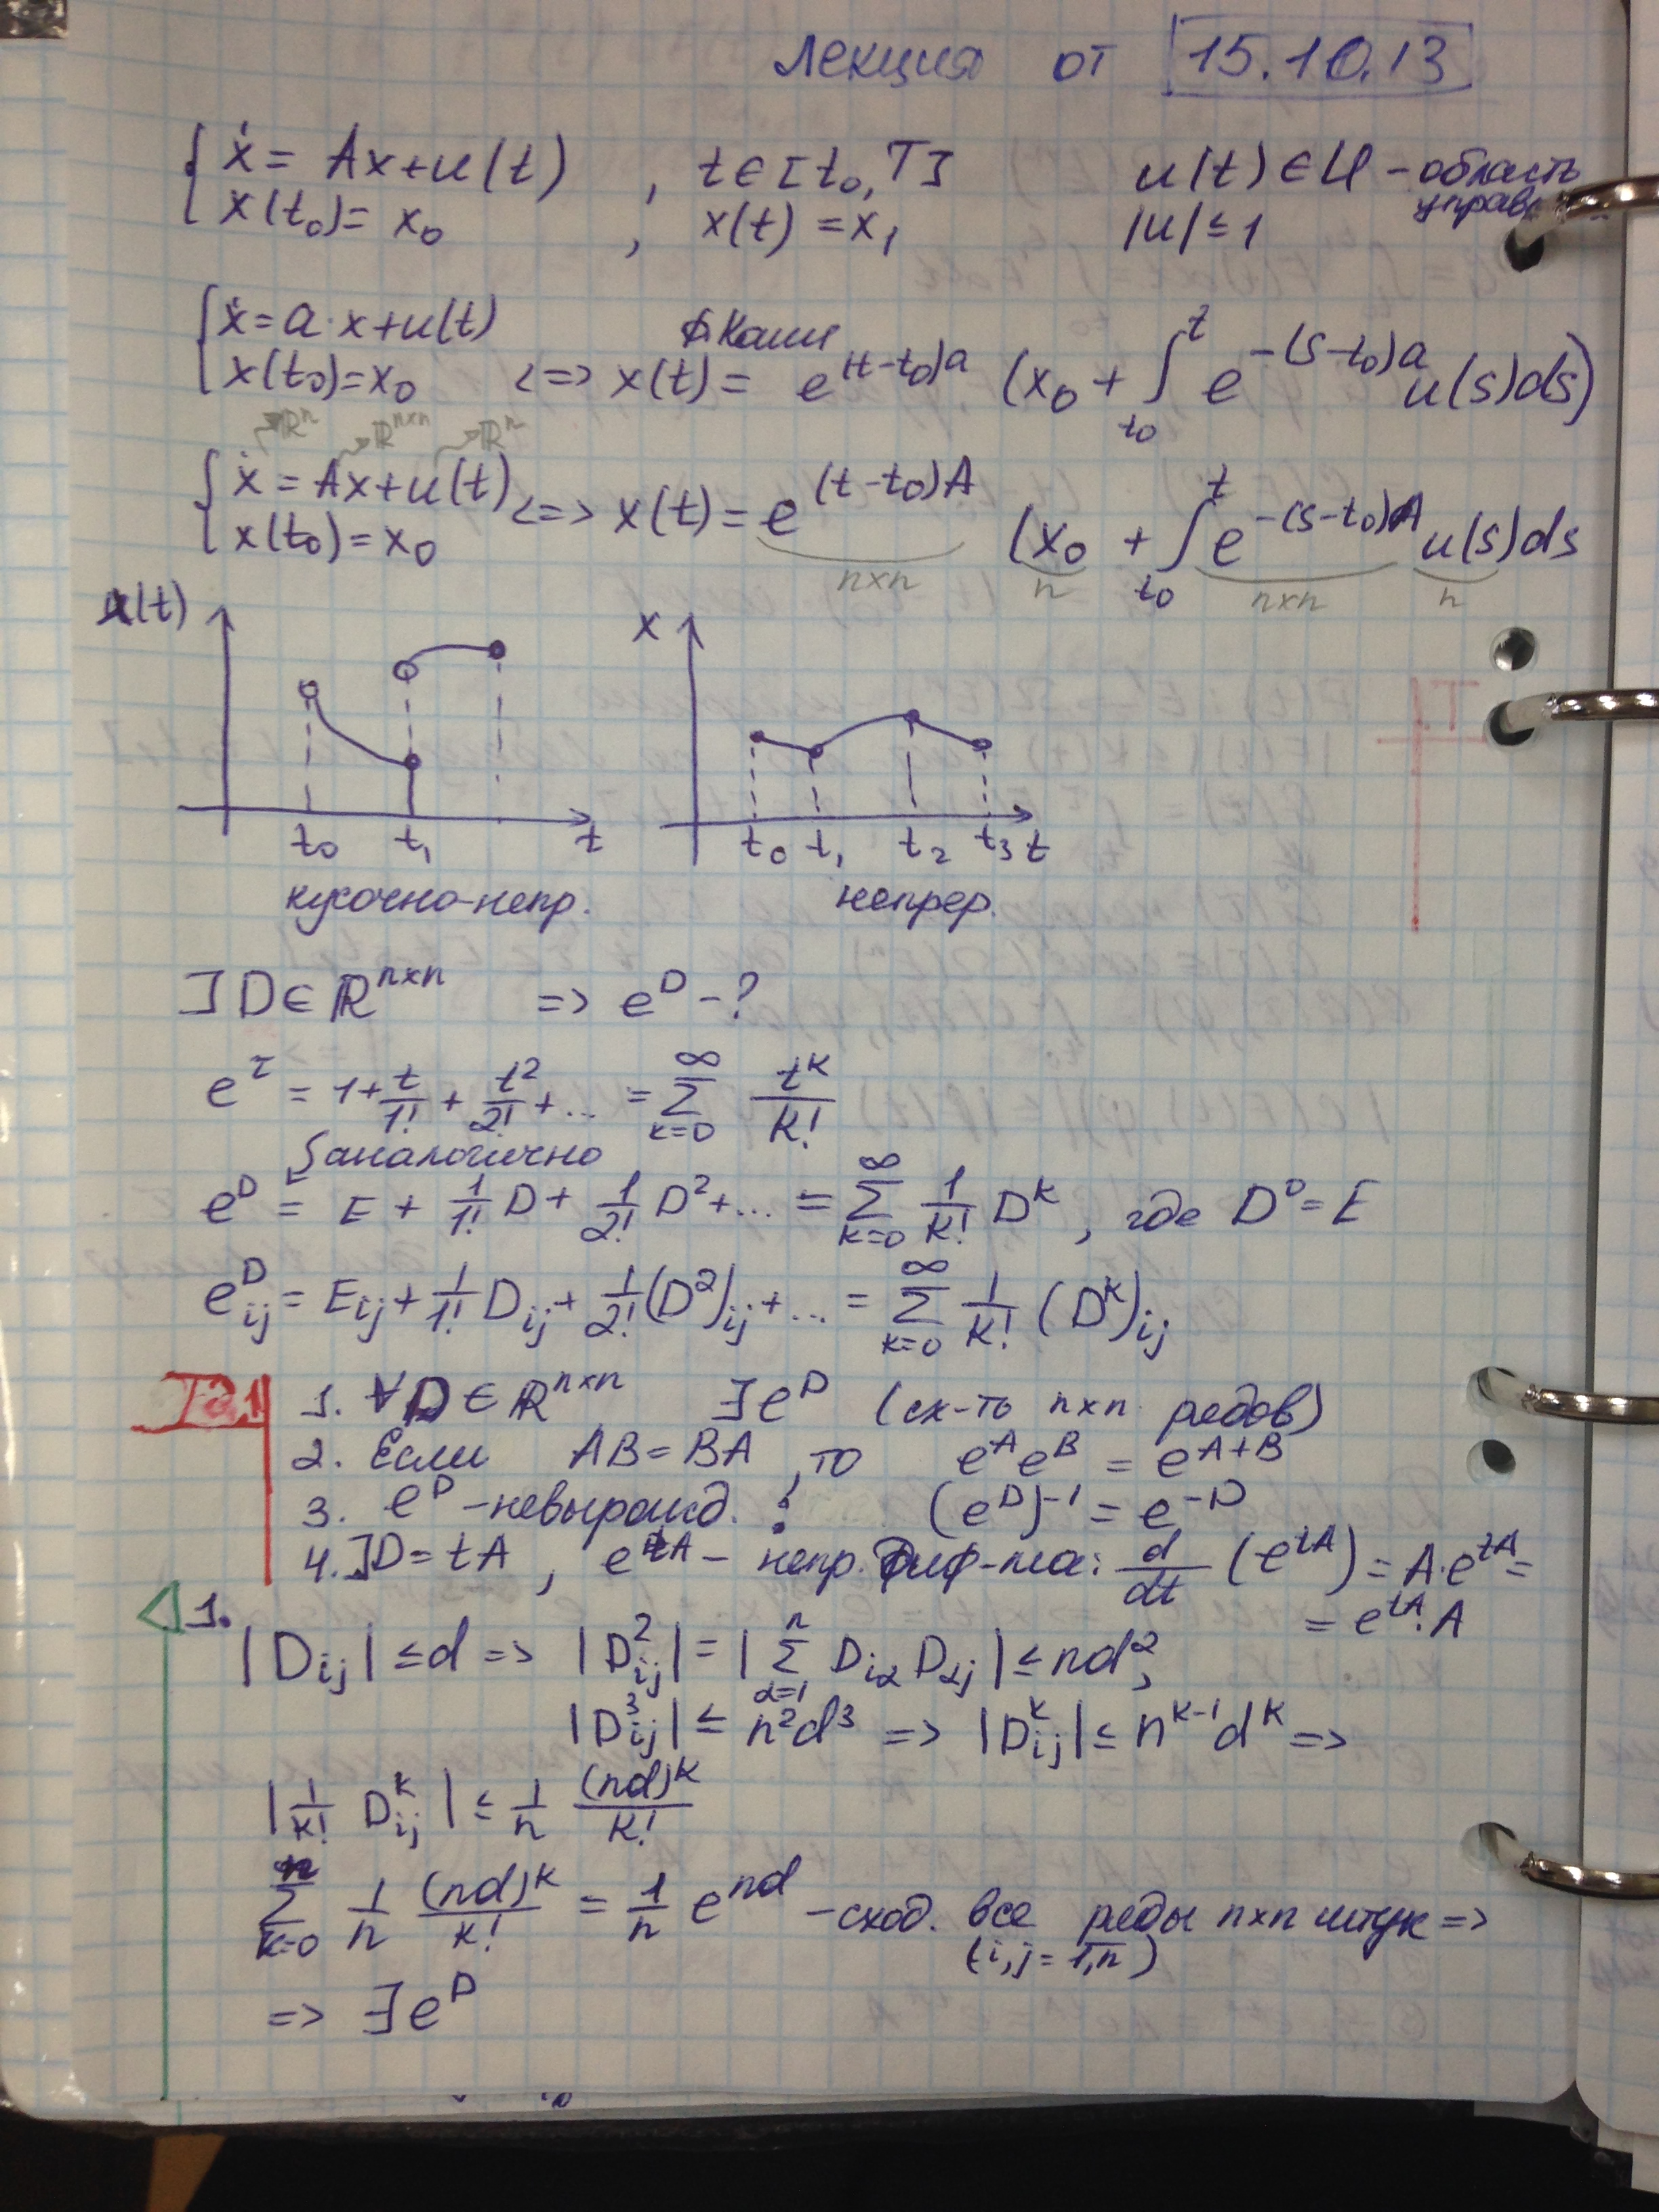 Лекция от 15.10.13
{ ẋ = Ax+u(t) , t∈[t₀,T] u(t)∈U – область
x(t₀)= x₀ , x(t)=x₁ |u|≤1 управ
{ ẋ=a·x+u(t) ф. Коши
x(t₀)=x₀ <=> x(t)= e^{(t-t₀)a} (x₀ + ∫_{t₀}^{t} e^{-(s-t₀)a} u(s)ds)
ℝⁿ ℝⁿˣⁿ ℝⁿ
{ ẋ = Ax+u(t) <=> x(t) = e^{(t-t₀)A} (x₀ + ∫_{t₀}^{t} e^{-(s-t₀)A} u(s)ds
x(t₀)=x₀
n×n n n×n n
u(t) x
t₀ t₁ t t₀ t₁ t₂ t₃ t
кусочно-непр. непрер.
∃ D∈ℝⁿˣⁿ => e^D –?
e^τ = 1+ t/1! + t²/2! +... = ∑_{k=0}^{∞} t^k/k!
аналогично
e^D = E + 1/1! D + 1/2! D² +... = ∑_{k=0}^{∞} 1/k! D^k , где D⁰=E
e^D_{ij} = E_{ij} + 1/1! D_{ij} + 1/2! (D²)_{ij} +... = ∑_{k=0}^{∞} 1/k! (D^k)_{ij}
1. ∀D∈ℝⁿˣⁿ ∃e^D (сх-ть n×n рядов)
2. Если AB=BA, то e^A e^B = e^{A+B}
3. e^D – невырожд. ; (e^D)^{-1} = e^{-D}
4. ∃D=tA , e^{tA} – непр. диф-ма: d/dt (e^{tA}) = A·e^{tA} =
= e^{tA}·A
1.
|D_{ij}| ≤ d => |D²_{ij}| = |∑_{α=1}^{n} D_{iα} D_{αj}| ≤ nd²,
|D³_{ij}| ≤ n²d³ => |D^k_{ij}| ≤ n^{k-1}d^k =>
|1/k! D^k_{ij}| ≤ 1/n (nd)^k/k!
∑_{k=0}^{n} 1/n (nd)^k/k! = 1/n e^{nd} – сход. все ряды n×n штук =>
(i,j=1,n)
=> ∃e^D